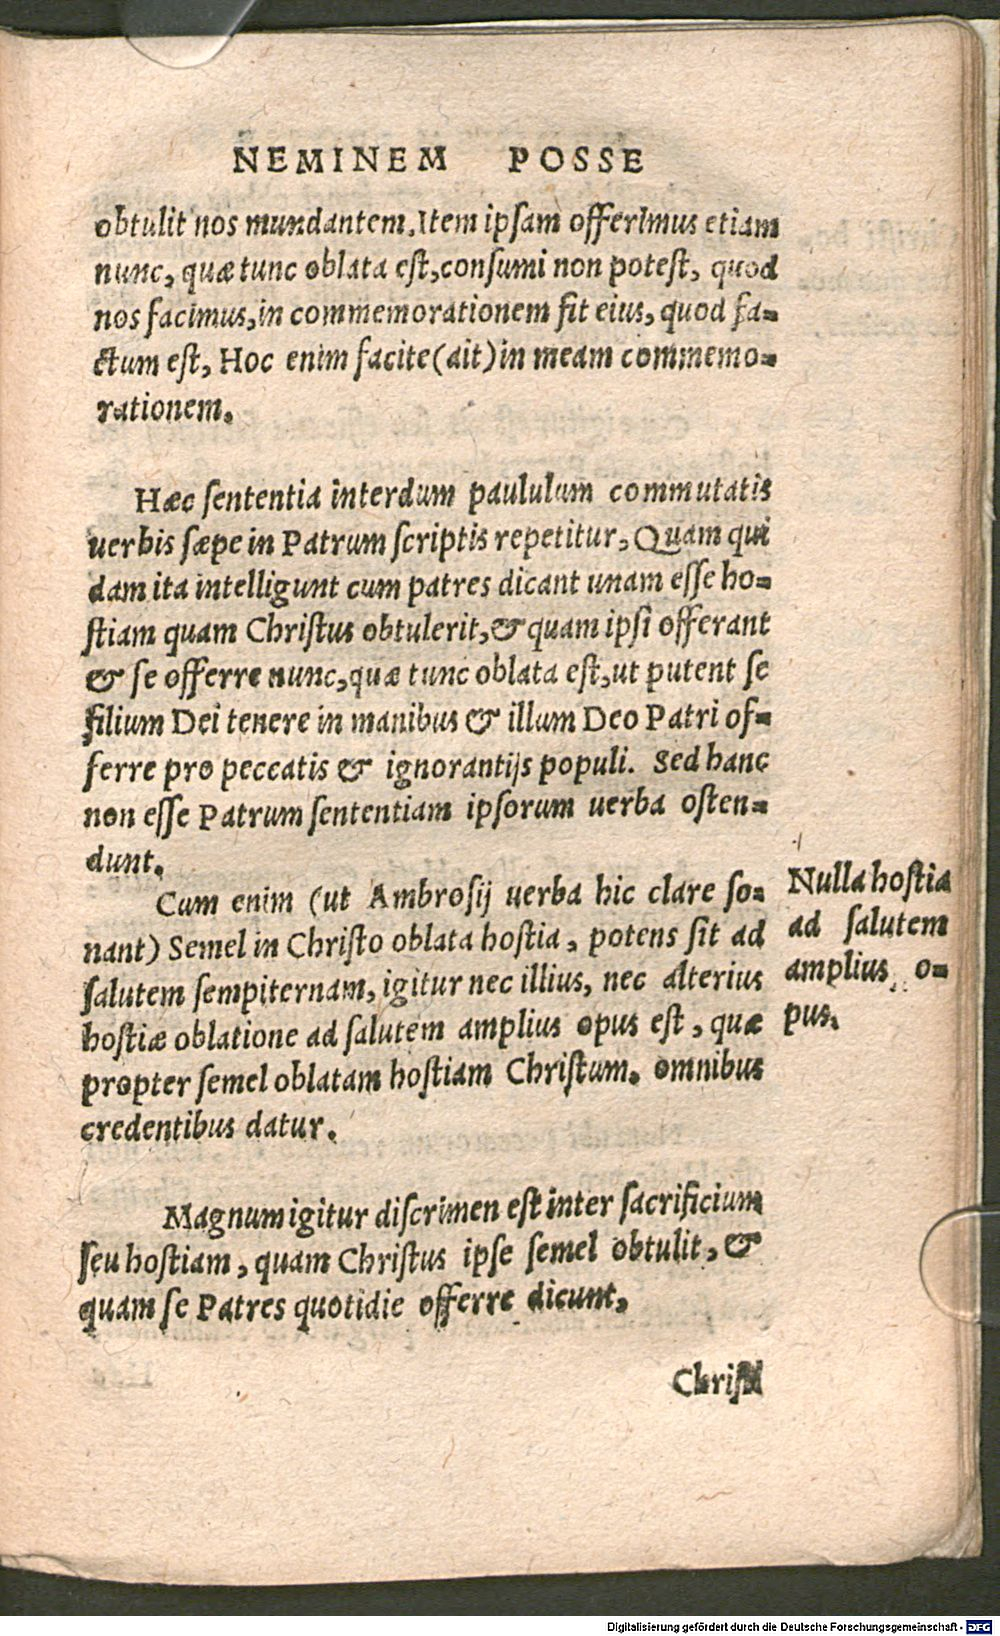 NEMINEM POSSE
obtulit nos mundantem. Item ipsam offerimus etiam
nunc, quæ tunc oblata est, consumi non potest, quod
nos facimus, in commemorationem fit eius, quod fa-
ctum est, Hoc enim facite (ait) in meam commemo-
rationem.
Hæc sententia interdum paululum commutatis
uerbis sæpe in Patrum scriptis repetitur, Quam qui
dam ita intelligunt cum patres dicant unam esse ho-
stiam quam Christus obtulerit, & quam ipsi offerant
& se offerre nunc, quæ tunc oblata est, ut putent se
filium Dei tenere in manibus & illum Deo Patri of-
ferre pro peccatis & ignorantijs populi. Sed hanc
non esse Patrum sententiam ipsorum uerba osten-
dunt.
Cum enim (ut Ambrosij uerba hic clare so-
nant) Semel in Christo oblata hostia, potens sit ad
salutem sempiternam, igitur nec illius, nec alterius
hostiæ oblatione ad salutem amplius opus est, quæ
propter semel oblatam hostiam Christum. omnibus
credentibus datur.
Nulla hostia
ad salutem
amplius o-
pus.
Magnum igitur discrimen est inter sacrificium
seu hostiam, quam Christus ipse semel obtulit, &
quam se Patres quotidie offerre dicunt.
Digitalisierung gefördert durch die Deutsche Forschungsgemeinschaft - DFG